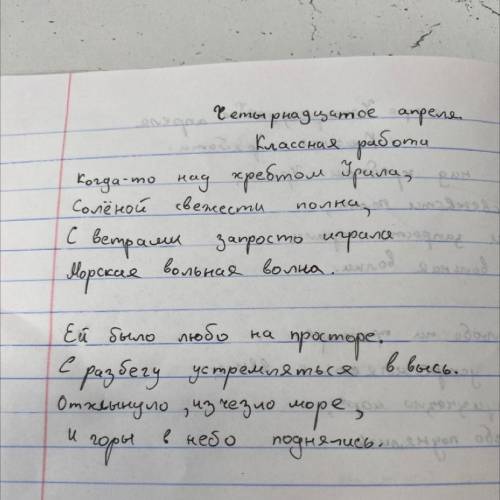 Четырнадцатое апреля.
Классная работа
Когда-то над хребтом Урала,
Солёной свежести полна,
С ветрами запросто играла
Морская вольная волна.
Ей было любо на просторе.
С разбегу устремляться в высь.
Отхлынуло, изчезло море,
И горы в небо поднялись.